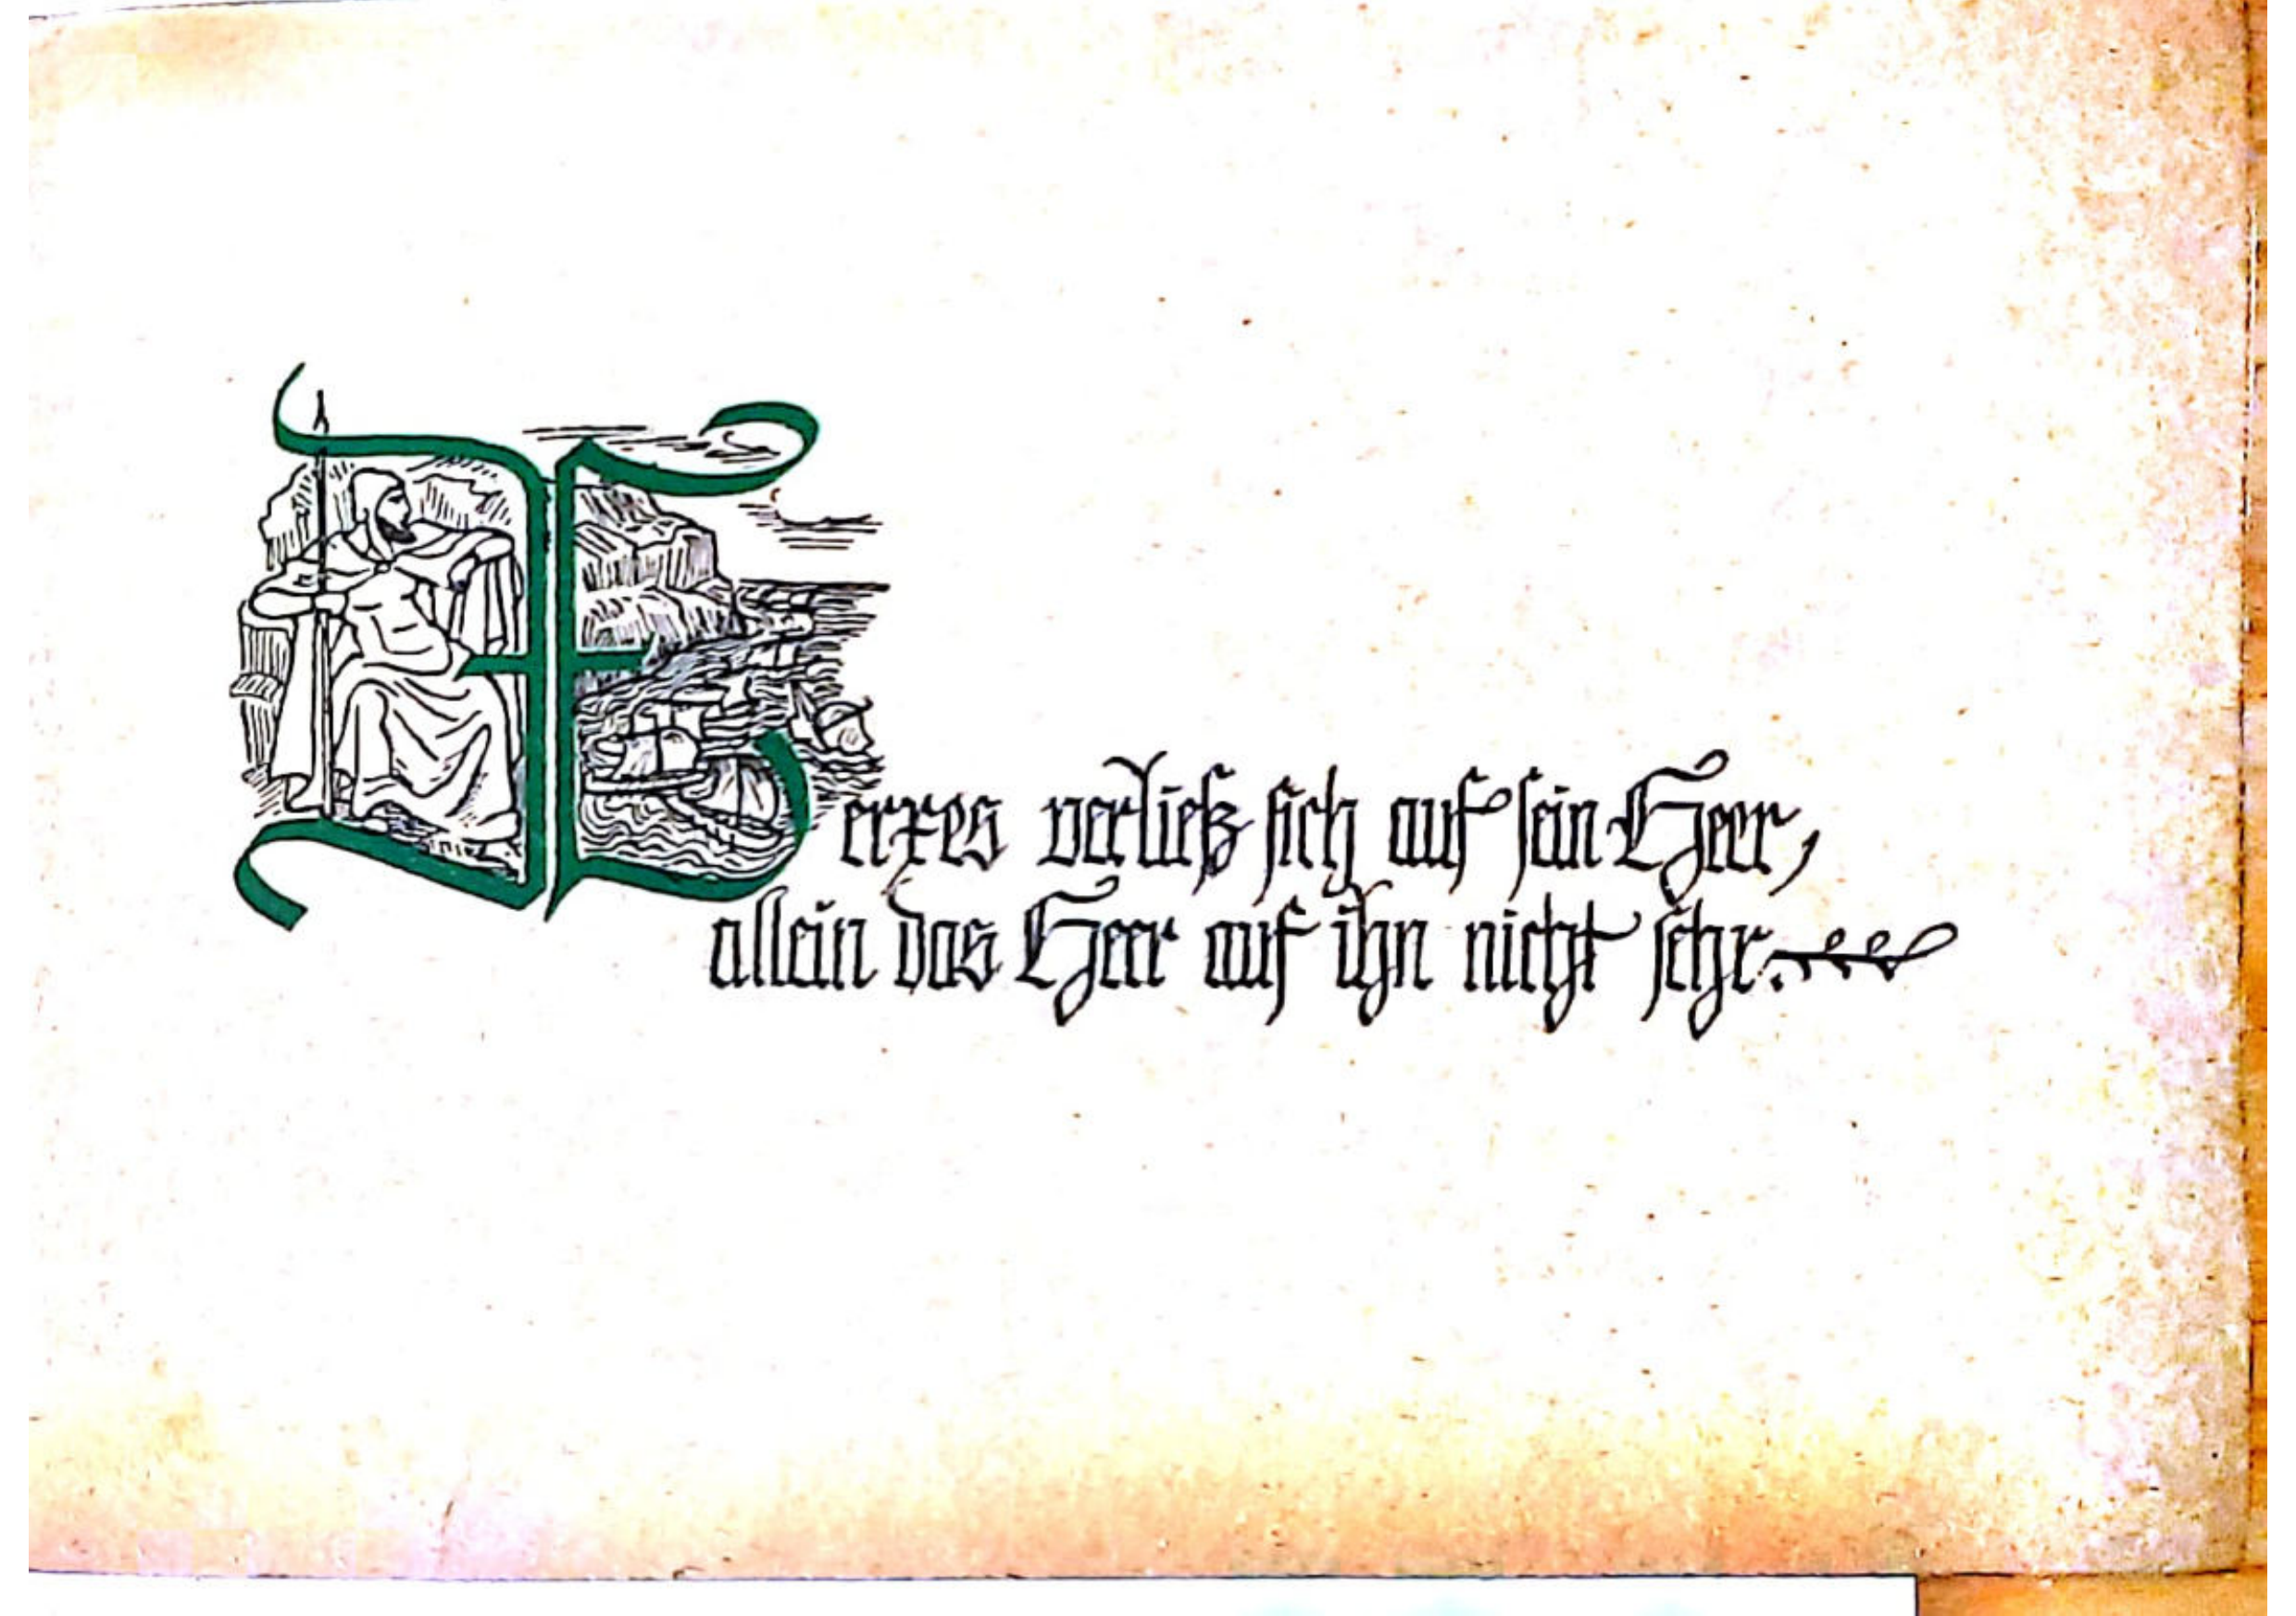 Xerxes verließ sich auf sein Heer,
allein das Heer auf ihn nicht sehr.